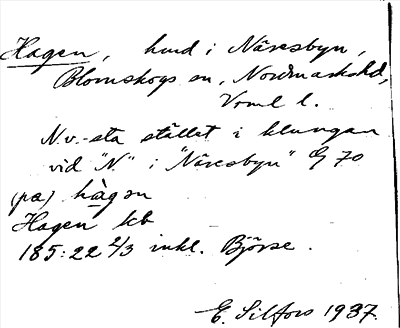 Hagen, hmd i Näresbyn,
Blomskogs sn, Nordmarkshd,
Vrml l.
N.v.-sta stället i klungan
vid "N." i "Näresbyn" G 70
(pa) hàgɘn
Hagen kb
185:22 2/3 inkl. Björse.
E. Silfors 1937.